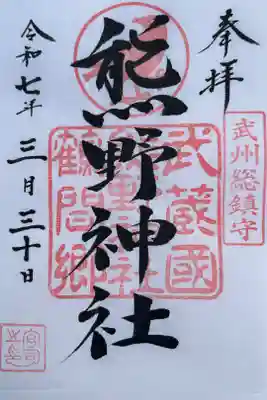 奉拝
武州総鎮守
熊野神社
武蔵國
熊野神社
鶴間郷
令和七年三月三十日